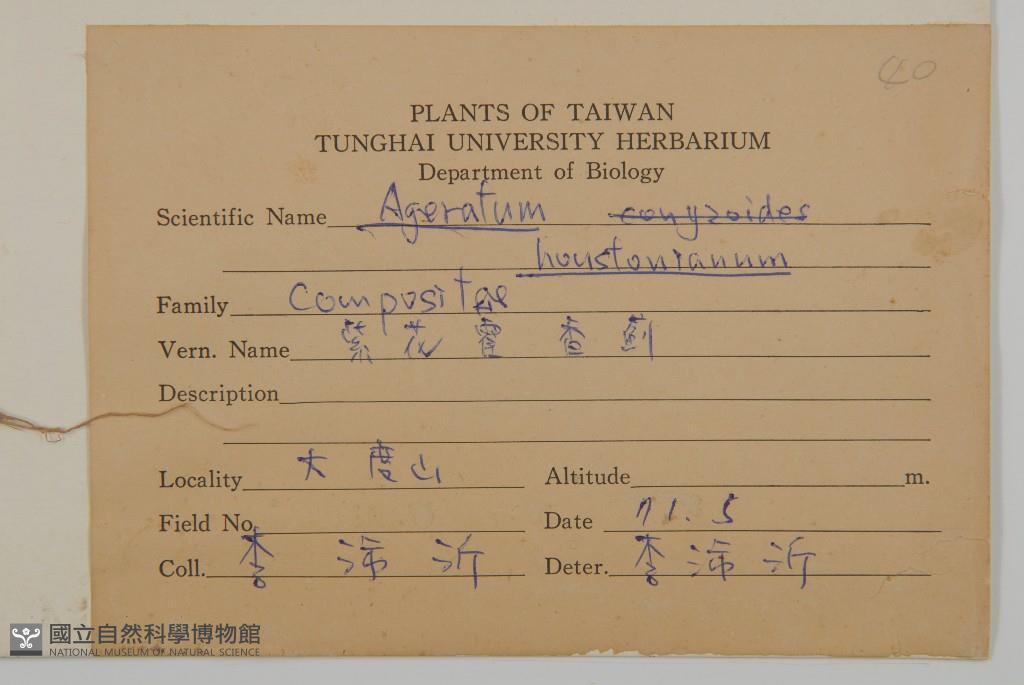 40
PLANTS OF TAIWAN
TUNGHAI UNIVERSITY HERBARIUM
Department of Biology
Scientific Name Ageratum conyzoides
houstonianum
Family Compositae
Vern. Name 紫花霍香薊
Description
Locality 大度山 Altitude m.
Field No. Date 71.5
Coll. 李沛沂 Deter. 李沛沂
國立自然科學博物館
NATIONAL MUSEUM OF NATURAL SCIENCE